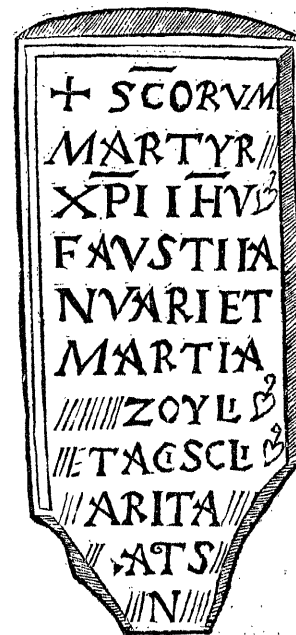 + SCORVM
MARTYR
XPI IHV
FAVSTI IA
NVARI ET
MARTIA
ZOYLI
ETACISCLI
ARITA
ATS
N